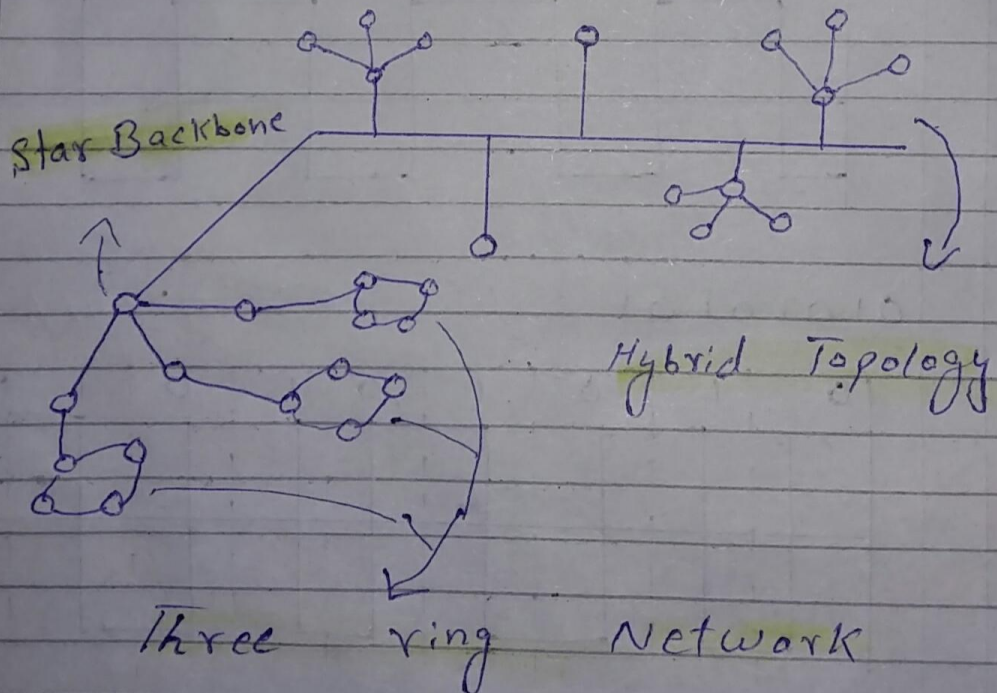 Star Backbone
Hybrid Topology
Three ring Network